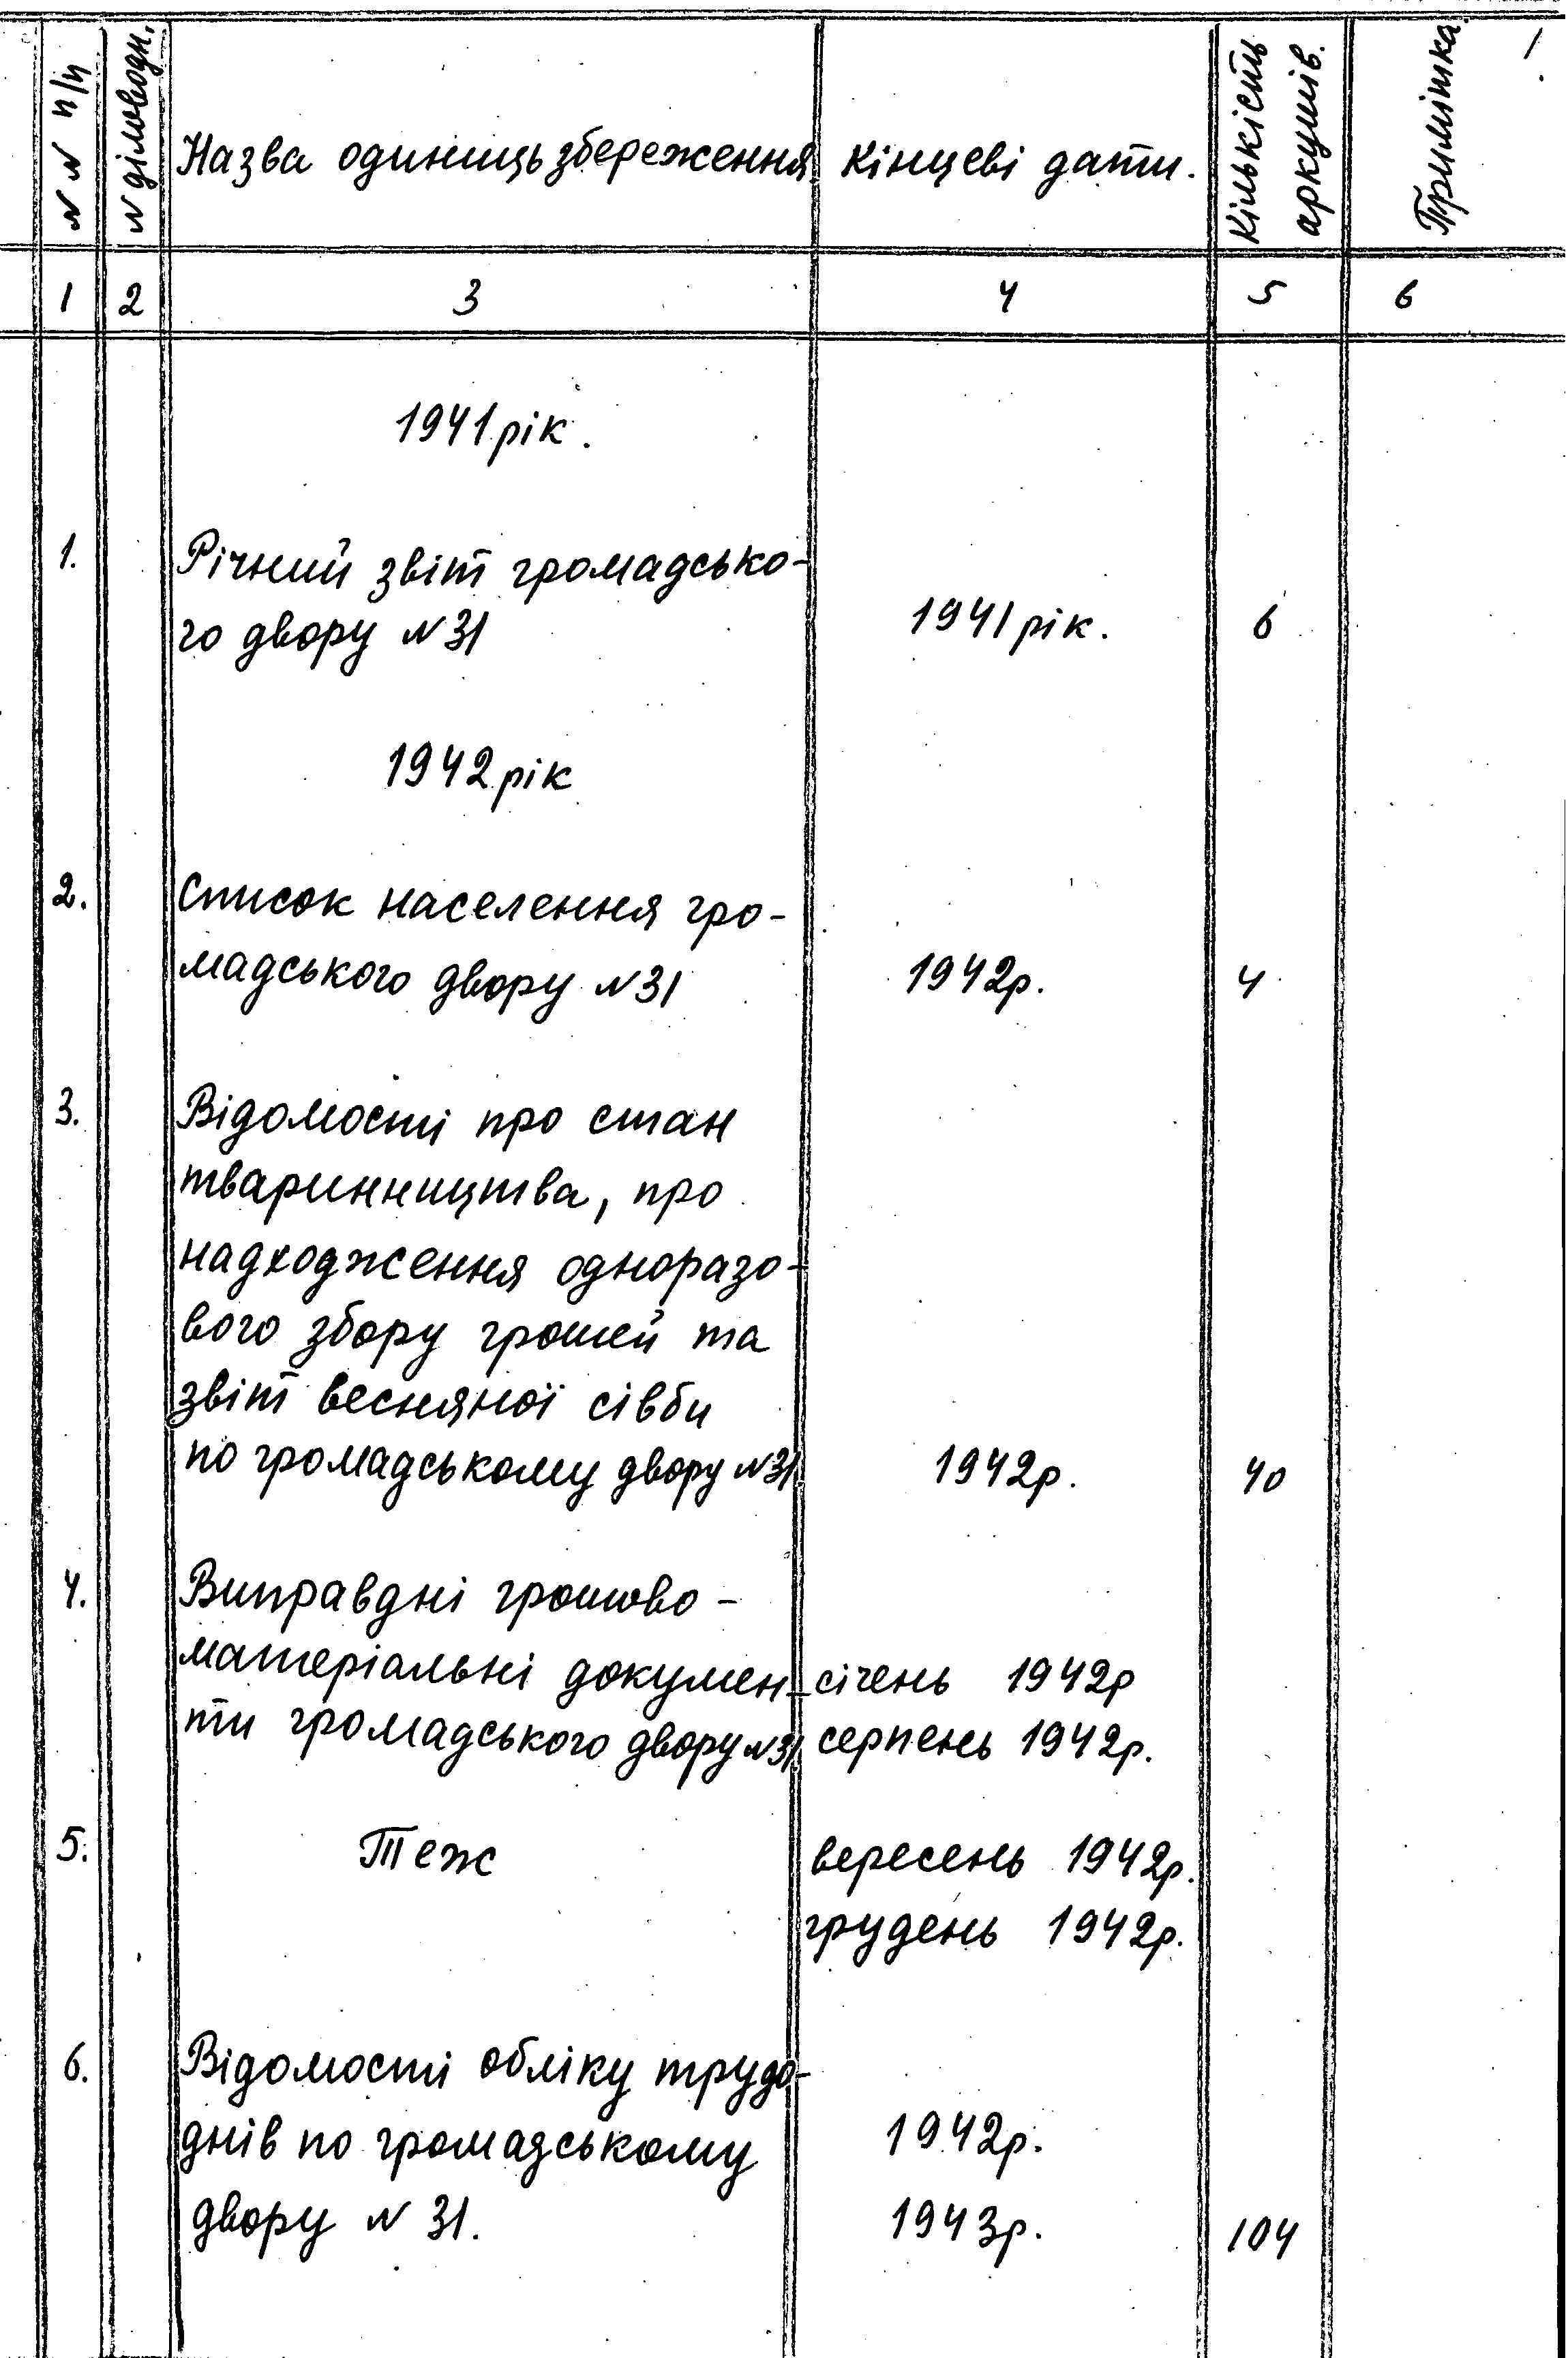 N N п/п N діловодн. Назва одиниць збереження. Кінцеві дати. Кількість аркушів. Примітка. 1
1 2 3 4 5 6
1941 рік.
1. Річний звіт громадсько-
го двору N 31 1941 рік. 6
1942 рік
2. Список населення гро-
мадського двору N 31 1942р. 4
3. Відомості про стан
тваринництва, про
надходження одноразо-
вого збору грошей та
звіт весняної сівби
по громадському двору N 31. 1942р. 40
4. Виправдні грошово-
матеріальні докумен- січень 1942р
ти громадського двору N 31. серпень 1942р.
5. Теж вересень 1942р.
грудень 1942р.
6. Відомості обліку трудо-
днів по громадському 1942р.
двору N 31. 1943р. 104